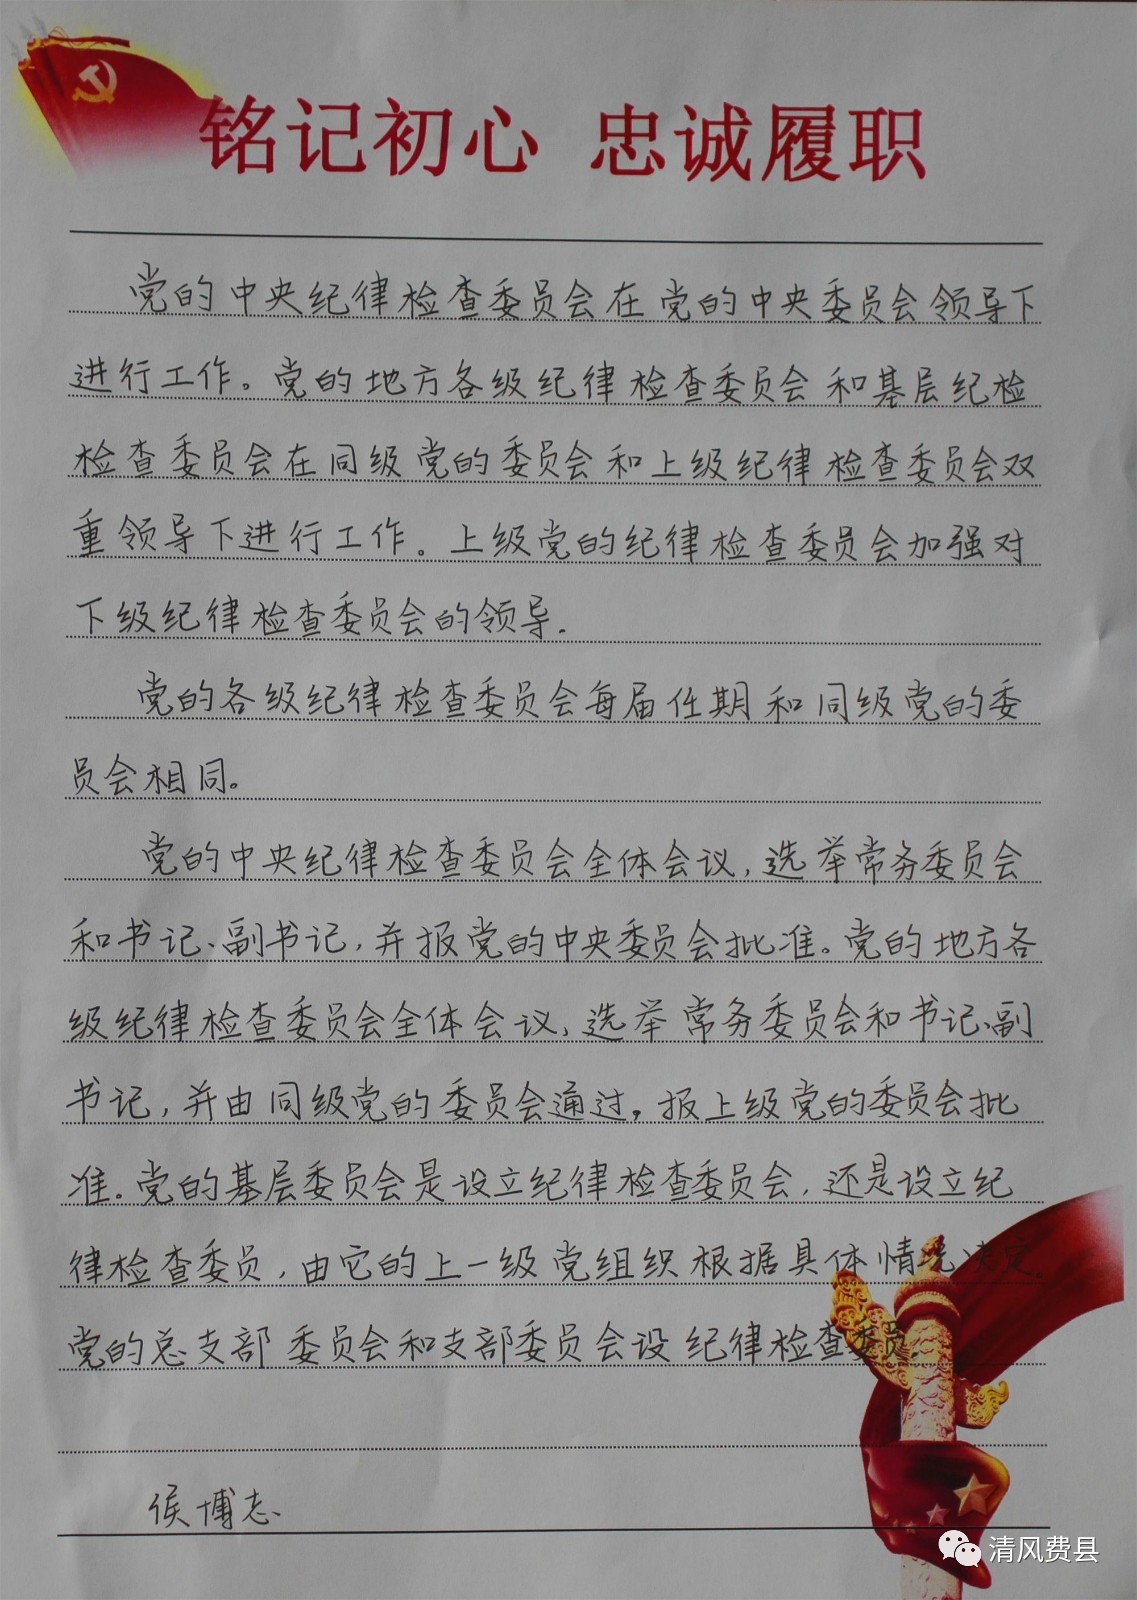 铭记初心 忠诚履职
党的中央纪律检查委员会在党的中央委员会领导下
进行工作。党的地方各级纪律检查委员会和基层纪检
检查委员会在同级党的委员会和上级纪律检查委员会双
重领导下进行工作。上级党的纪律检查委员会加强对
下级纪律检查委员会的领导.
党的各级纪律检查委员会每届任期和同级党的委
员会相同。
党的中央纪律检查委员会全体会议,选举常务委员会
和书记、副书记,并报党的中央委员会批准。党的地方各
级纪律检查委员会全体会议,选举常务委员会和书记、副
书记,并由同级党的委员会通过,报上级党的委员会批
准。党的基层委员会是设立纪律检查委员会,还是设立纪
律检查委员,由它的上一级党组织根据具体情况决定.
党的总支部委员会和支部委员会设纪律检查委员.
侯博志
清风费县